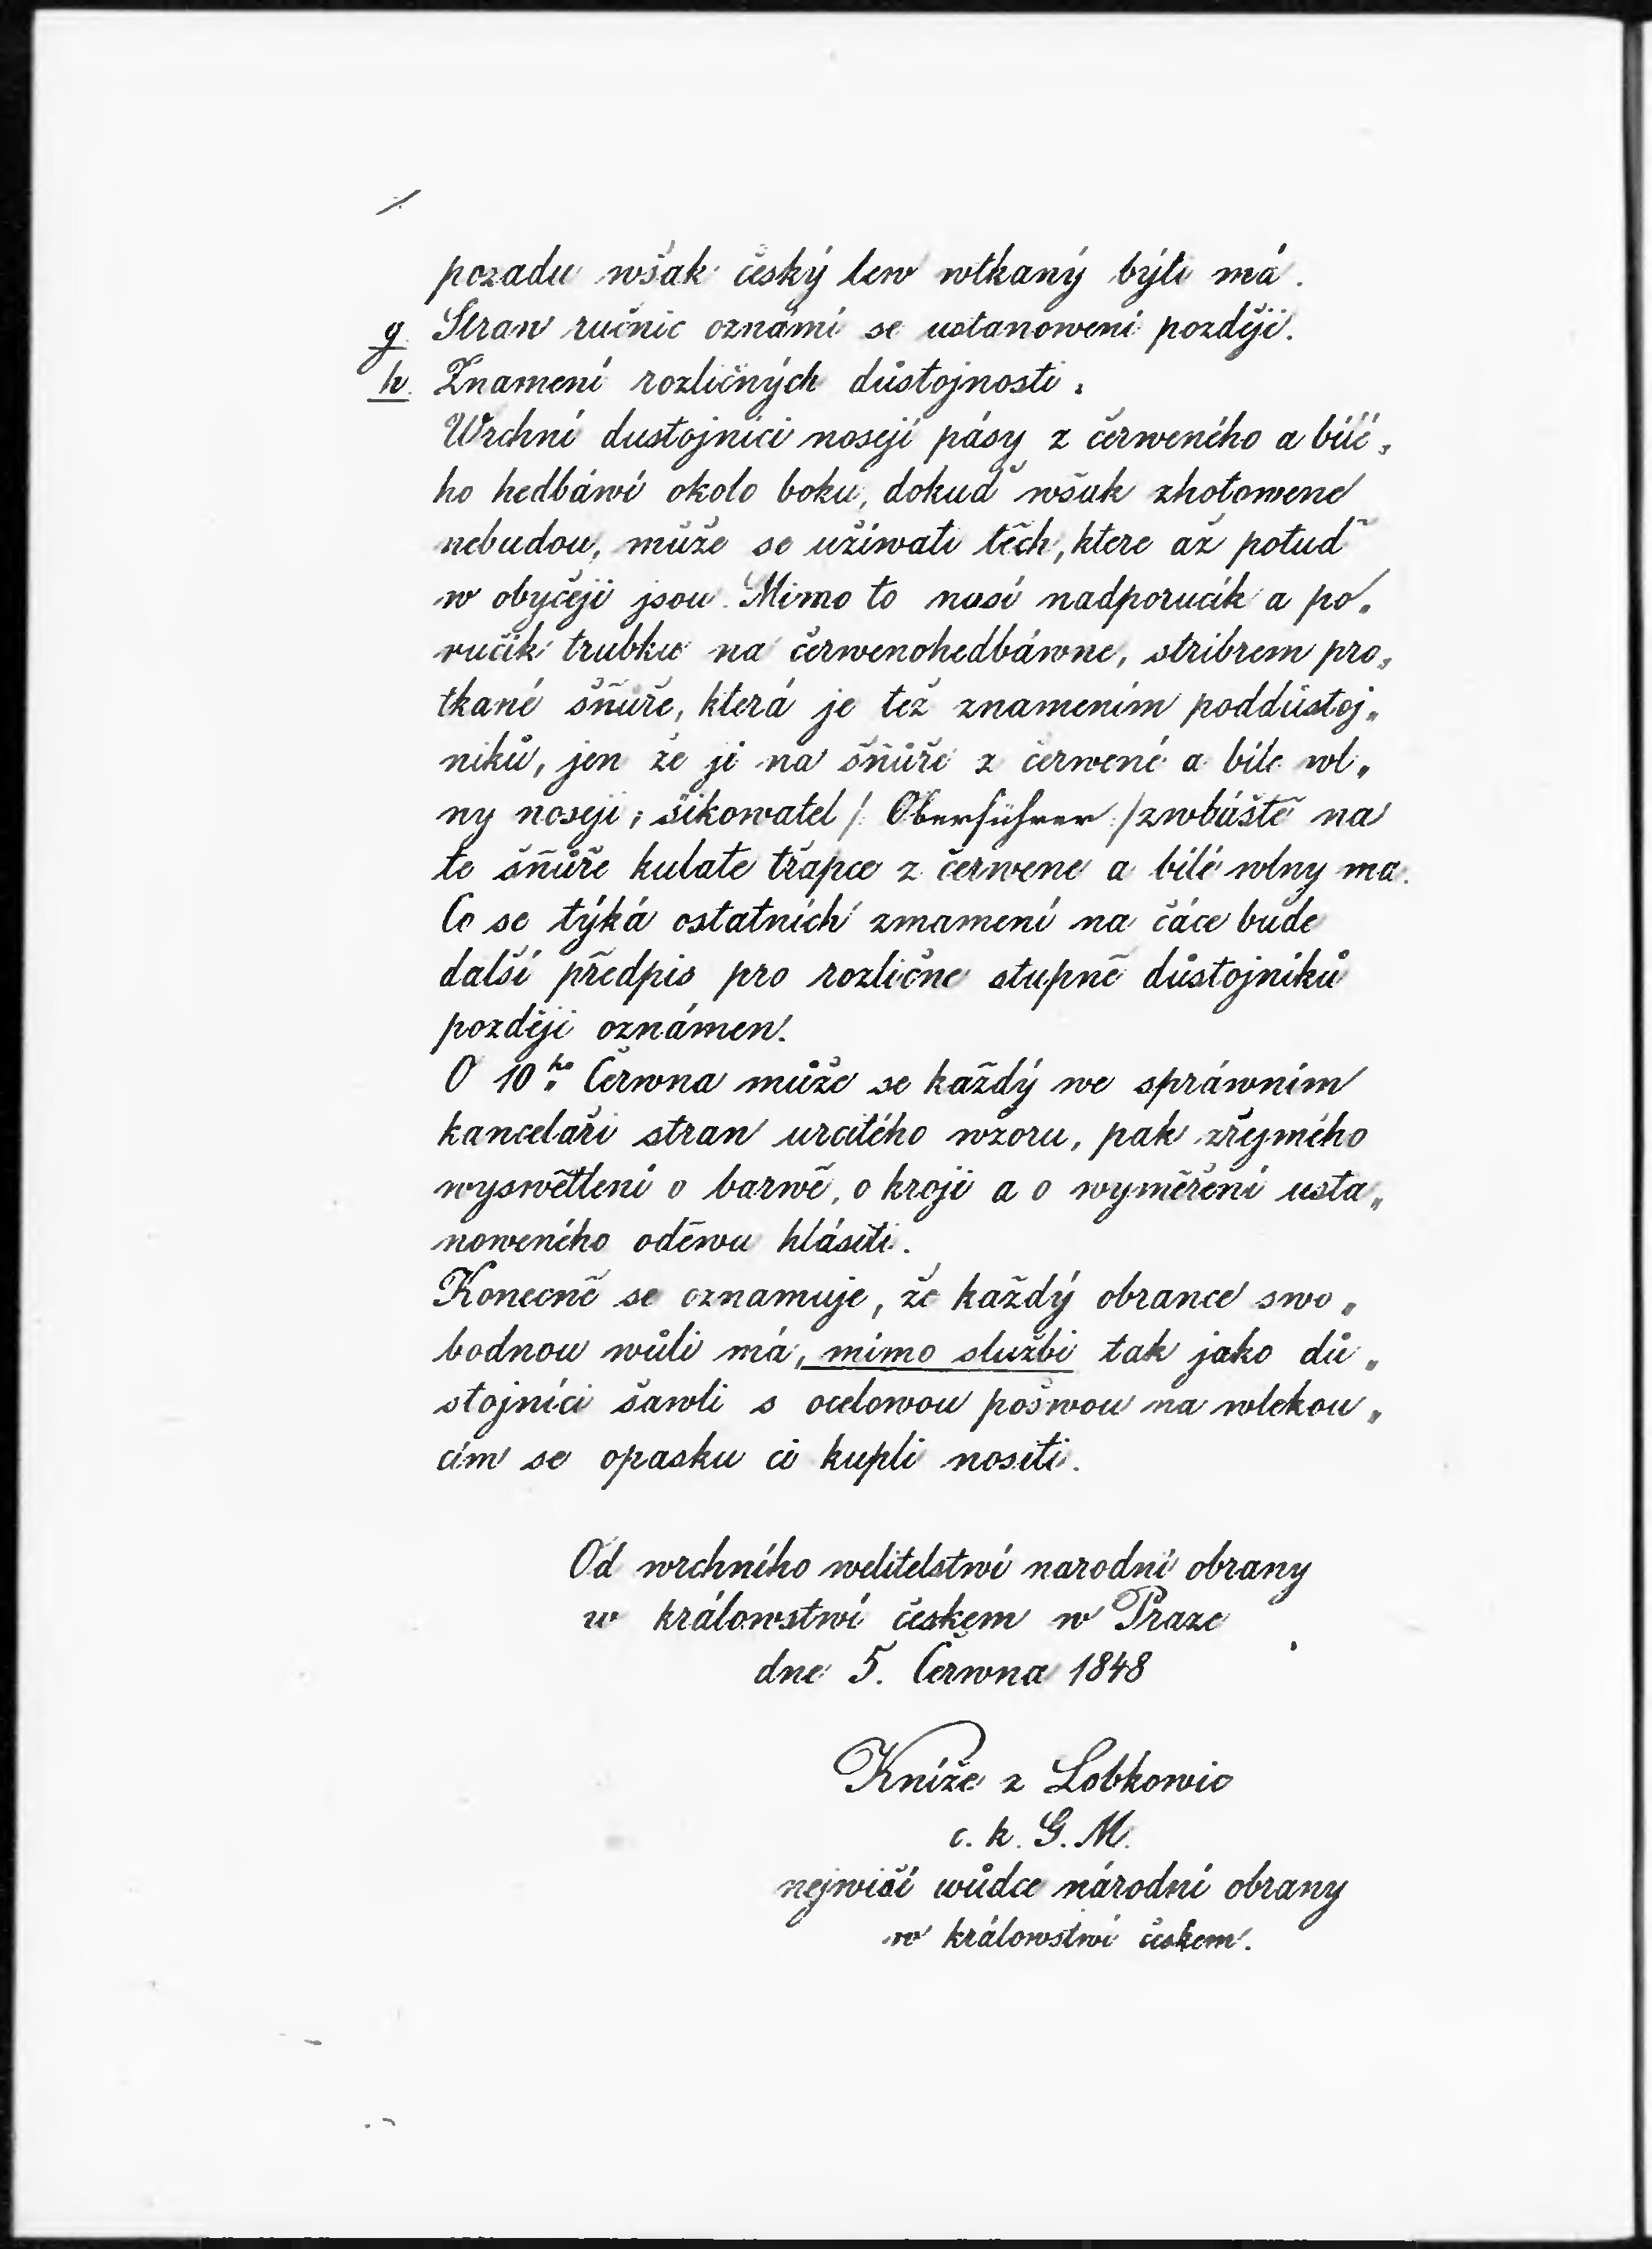 pozadu wšak český lew wtkaný býti má.
g. Stran ručnic oznámí se ustanowení pozdějí.
h. Znamení rozličných důstojnosti.
Wrchní dustojníci nosejí pásy z červeného a bílé„
ho hedbáwí okolo boku, dokuď wšak zhotowene
nebudou, může se užíwati těch, ktere až potuď
w obyčeji jsou. Mimo to nosí nadporučík a po„
ručík trubku na čerwenohedbáwne, stribrem pro„
tkané šňůře, která je též znamením poddůstoj„
níků, jen že ji na šňůře z čerwené a bíle wl„
ny nosejí; šikowatel /: Oberführer :/ zwláště na
te šňůře kulate třapce z čerwene a bílé wlny ma.
Co se týká ostatních zmamení na čáce bude
další předpis pro rozlične stupně důstojníků
pozdějí oznámen.
O 10ho Čerwna může se každý we spráwním
kanceláři stran urcitého wzoru, pak zřejmého
wyswětlení o barwě, o kroji a o wyměření usta„
noweného oděwu hlásiti.
Konecně se oznamuje, že každý obrance swo„
bodnou wůli má, mimo službi tak jako dů„
stojníci šawli s ocelowou pošwou na wlekou„
cím se opasku ci kupli nositi.
Od wrchního welitelstwí narodní obrany
w králowstwí českem w Praze
dne 5. Čerwna 1848
Kníže z Lobkowic
c. k. G. M.
nejwiší wůdce národní obrany
w králowstwí českem.